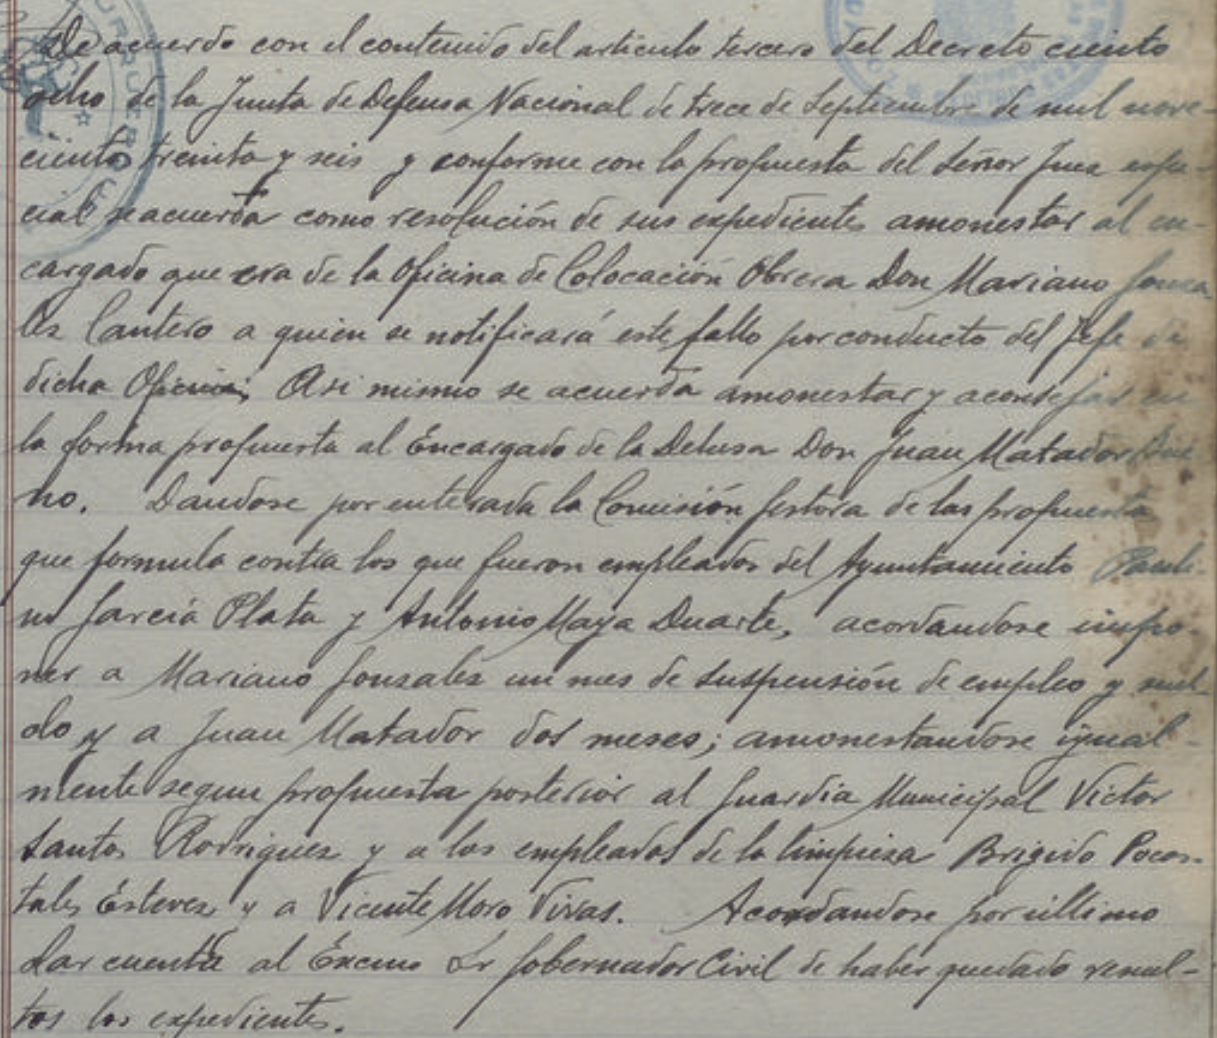 De acuerdo con el contenido del articulo tercero del Decreto ciento
ocho de la Junta de Defensa Nacional de trece de Septiembre de mil nove-
cientos treinta y seis y conforme con la propuesta del Señor Juez espe-
cial se acuerda como resolución de sus expedientes amonestar al en-
cargado que era de la Oficina de Colocación Obrera Don Mariano Gonza
lez Cantero a quien se notificará este fallo por conducto del Jefe de
dicha Oficina; Asi mismo se acuerda amonestar y aconsejar en
la forma propuesta al Encargado de la Dehesa Don Juan Matador
no. Dandose por enterada la Comisión Gestora de las propuesta
que formula contra los que fueron empleados del Ayuntamiento Pauli-
no García Plata y Antonio Maya Duarte, acordandose impo-
ner a Mariano Gonzalez un mes de suspensión de empleo y suel-
do y a Juan Matador dos meses; amonestandose igual-
mente segun propuesta posterior al Guardia Municipal Victor
Santos Rodriguez y a los empleados de la limpieza Brigido Pocos-
tales Estevez y a Vicente Moro Vivas. Acordandose por ultimo
dar cuenta al Excmo Sr Gobernador Civil de haber quedado resuel-
tos los expedientes.